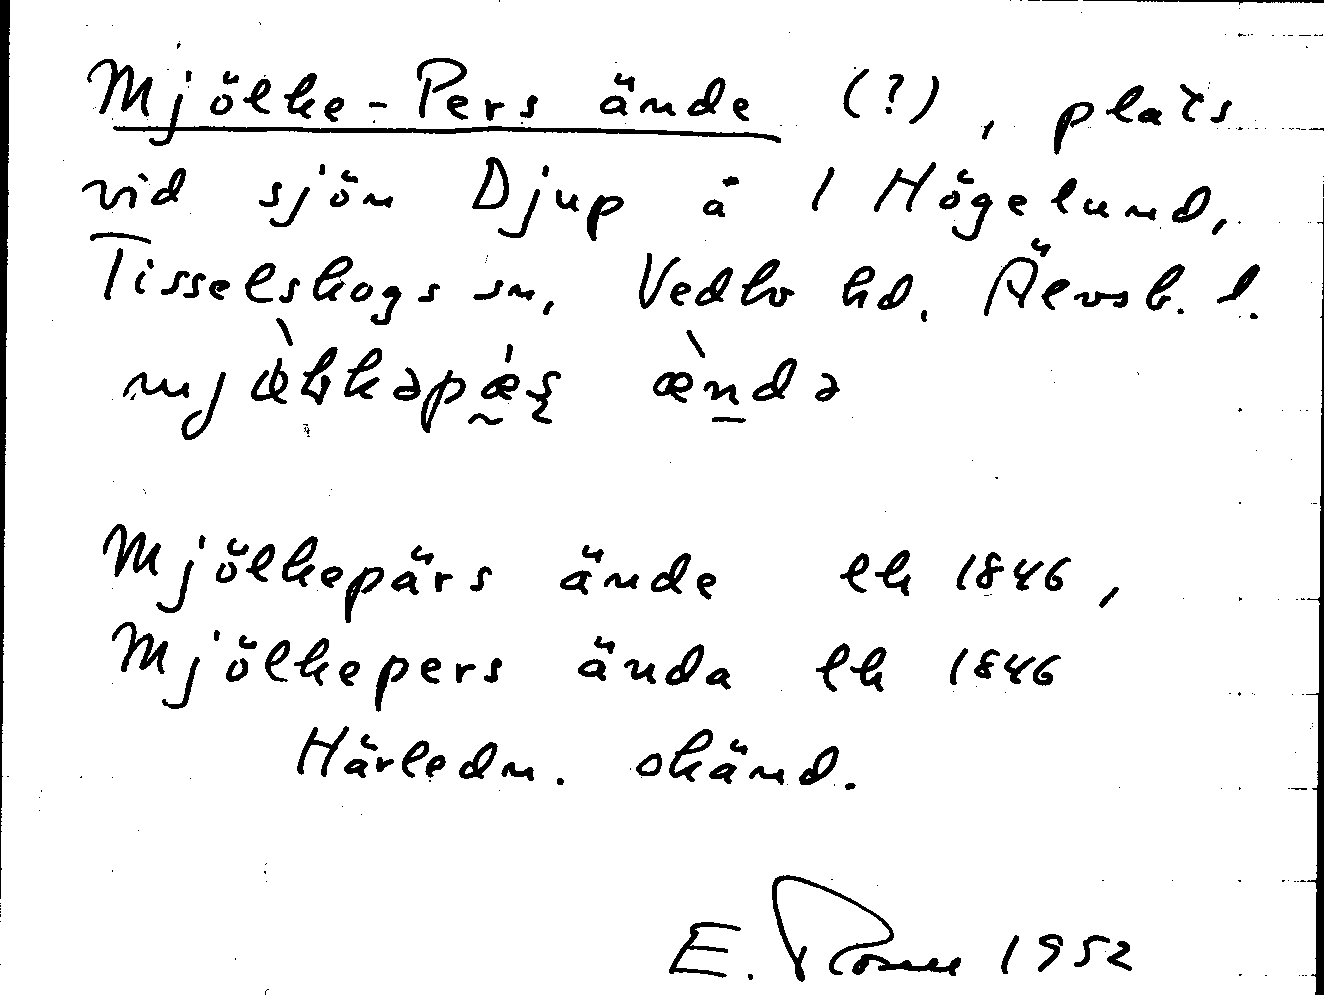 Mjölke-Pers ände (?), plats
vid sjön Djup å 1 Högelund,
Tisselskogs sn, Vedbo hd. Älvsb. l.
ändə
Mjölkepärs ände lk 1846,
Mjölkepers ända lk 1846
Härledn. okänd.
E. 1952